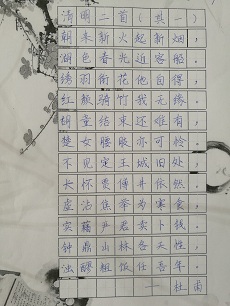 清明二首（其一）
朝来新火起新烟，
湖色春光近客船。
绣羽衔花他自得，
红颜骑竹我无缘。
胡童结束还难有，
楚女腰肢亦可怜。
不见定王城旧处，
长怀贾傅井依然。
虚沾焦举为寒食，
实藉君卖卜钱。
钟鼎山林各天性，
浊醪粗饭任吾年。
— 杜甫